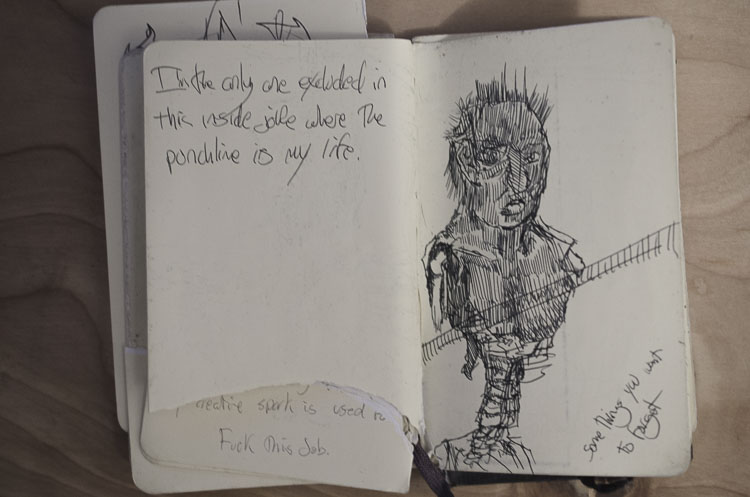 I'm the only one excluded in
this inside joke where the
punchline is my life.
creative spark is used to
Fuck this Job.
Some things you want
to Forget